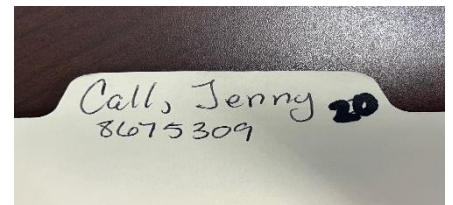 Call, Jenny 20
8675309